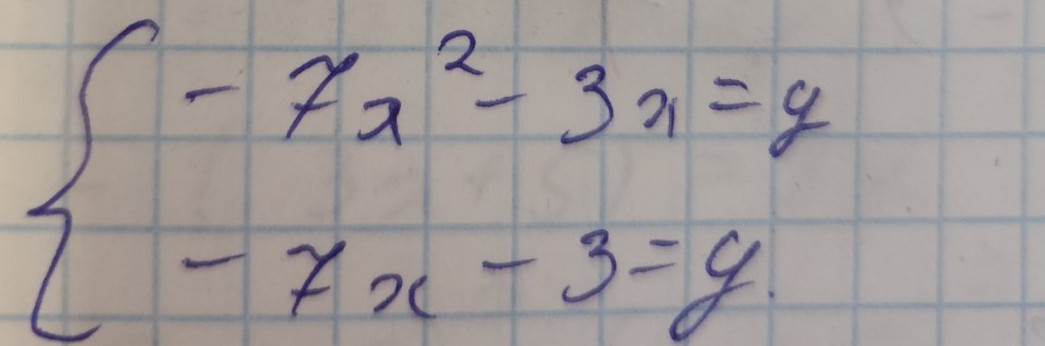 - 7x² - 3x = y
- 7x - 3 = y.